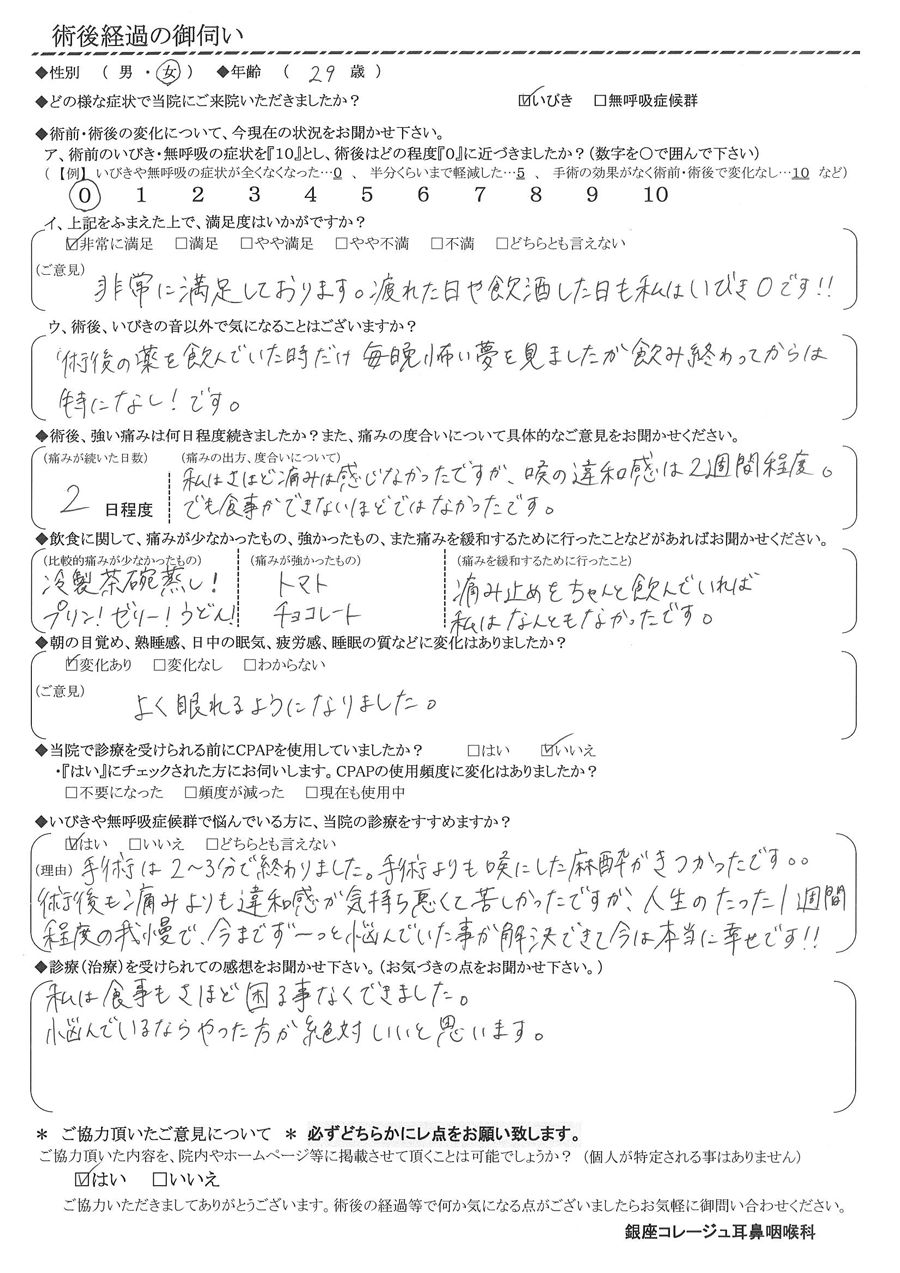 術後経過の御伺い
◆性別 （ 男 ・ 女 ） ◆年齢 （ 29 歳 ）
◆どの様な症状で当院にご来院いただきましたか？ ☑いびき □無呼吸症候群
◆術前・術後の変化について、今現在の状況をお聞かせ下さい。
ア、術前のいびき・無呼吸の症状を『10』とし、術後はどの程度『0』に近づきましたか？（数字を○で囲んで下さい）
（【例】いびきや無呼吸の症状が全くなくなった…0 、 半分くらいまで軽減した…5 、 手術の効果がなく術前・術後で変化なし…10 など）
0 1 2 3 4 5 6 7 8 9 10
イ、上記をふまえた上で、満足度はいかがですか？
☑非常に満足 □満足 □やや満足 □やや不満 □不満 □どちらとも言えない
（ご意見）
非常に満足しております。疲れた日や飲酒した日も私はいびき0です!!
ウ、術後、いびきの音以外で気になることはございますか？
術後の薬を飲んでいた時だけ 毎晩怖い夢を見ましたが飲み終わってからは
特になし！です。
◆術後、強い痛みは何日程度続きましたか？また、痛みの度合いについて具体的なご意見をお聞かせください。
（痛みが続いた日数） （痛みの出方、度合いについて）
2 日程度
私はさほど痛みは感じなかったですが、喉の違和感は2週間程度。
でも食事ができないほどではなかったです。
◆飲食に関して、痛みが少なかったもの、強かったもの、また痛みを緩和するために行ったことなどがあればお聞かせください。
（比較的痛みが少なかったもの） （痛みが強かったもの） （痛みを緩和するために行ったこと）
冷製茶碗蒸し！ トマト 痛み止めをちゃんと飲んでいれば
プリン！ゼリー！うどん! チョコレート 私はなんともなかったです。
◆朝の目覚め、熟睡感、日中の眠気、疲労感、睡眠の質などに変化はありましたか？
☑変化あり □変化なし □わからない
（ご意見）
よく眠れるようになりました。
◆当院で診療を受けられる前にCPAPを使用していましたか？ □はい ☑いいえ
・『はい』にチェックされた方にお伺いします。CPAPの使用頻度に変化はありましたか？
□不要になった □頻度が減った □現在も使用中
◆いびきや無呼吸症候群で悩んでいる方に、当院の診療をすすめますか？
☑はい □いいえ □どちらとも言えない
（理由）手術は2〜3分で終わりました。手術よりも喉にした麻酔がきつかったです。。
術後も痛みよりも違和感が気持ち悪くて苦しかったですが、人生のたった1週間
程度の我慢で、今までずーっと悩んでいた事が解決できて今は本当に幸せです!!
◆診療（治療）を受けられての感想をお聞かせ下さい。（お気づきの点をお聞かせ下さい。）
私は食事もさほど困る事なくできました。
悩んでいるならやった方が絶対しいいと思います。
＊ ご協力頂いたご意見について ＊ 必ずどちらかにレ点をお願い致します。
ご協力頂いた内容を、院内やホームページ等に掲載させて頂くことは可能でしょうか？ （個人が特定される事はありません）
☑はい □いいえ
ご協力いただきましてありがとうございます。術後の経過等で何か気になる点がございましたらお気軽に御問い合わせください。
銀座コレージュ耳鼻咽喉科